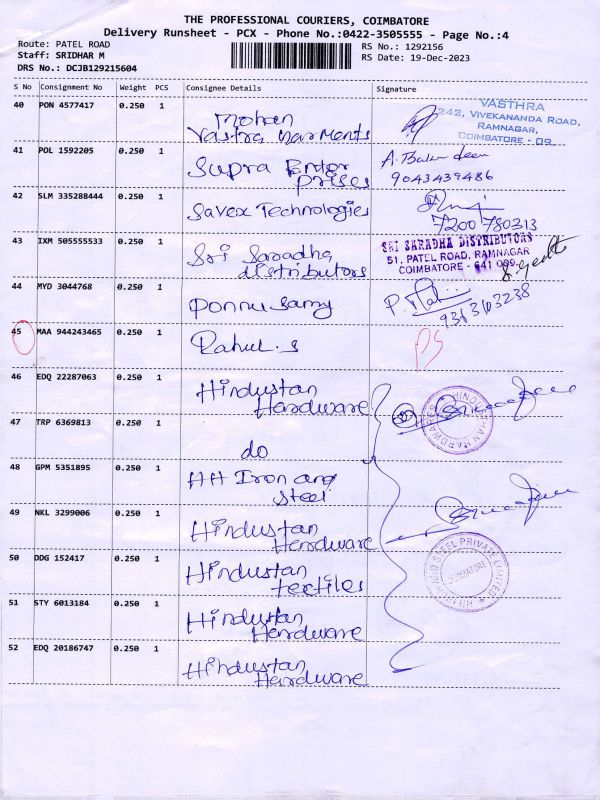 THE PROFESSIONAL COURIERS, COIMBATORE
Delivery Runsheet - PCX - Phone No.:0422-3505555 - Page No.:4
Route: PATEL ROAD
RS No.: 1292156
Staff: SRIDHAR M
RS Date: 19-Dec-2023
DRS No.: DCJB129215604
S No Consignment No Weight PCS Consignee Details Signature
40 PON 4577417 0.250 1
Mohan
Vastra Garments
VASTHRA
242, VIVEKANANDA ROAD,
RAMNAGAR,
COIMBATORE - 09.
41 POL 1592205 0.250 1
Supra Enter
prises
9043439486
42 SLM 335288444 0.250 1
Savex Technologies
7200780313
43 IXM 505555533 0.250 1
Sri Saradha
distributors
SRI SARADHA DISTRIBUTORS
51, PATEL ROAD, RAMNAGAR
COIMBATORE - 641 009.
44 MYD 3044768 0.250 1
Ponnusamy
9363103238
45 MAA 944243465 0.250 1
Rahul.s
PS
46 EDQ 22287063 0.250 1
Hindustan
Hardware
47 TRP 6369813 0.250 1
do
48 GPM 5351895 0.250 1
HH Iron and
steel
49 NKL 3299006 0.250 1
Hindustan
Hardware
50 DDG 152417 0.250 1
Hindustan
textiles
COIMBATORE
51 STY 6013184 0.250 1
Hindustan
Hardware
52 EDQ 20186747 0.250 1
Hindustan
Hardware